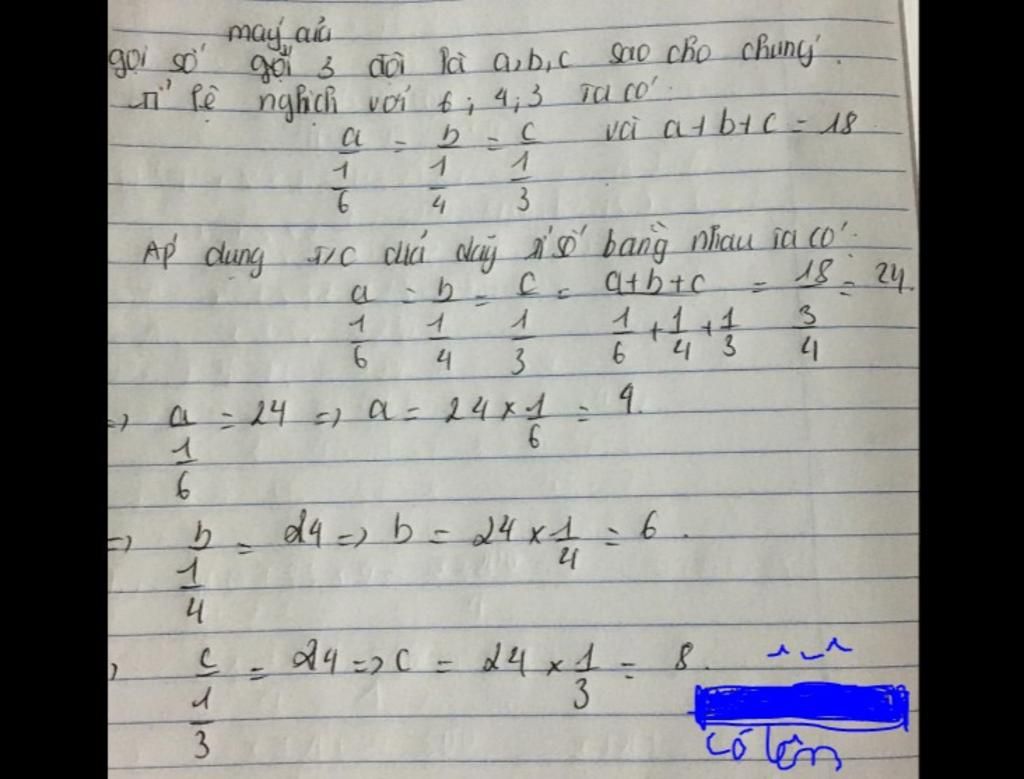 máy của
gọi số gọi 3 đội là a,b,c sao cho chúng
tỉ lệ nghịch với 6; 4; 3 ta có
a/(1/6) = b/(1/4) = c/(1/3) và a+b+c = 18
Áp dụng t/c của dãy tỉ số bằng nhau ta có:
a/(1/6) = b/(1/4) = c/(1/3) = (a+b+c)/(1/6+1/4+1/3) = 18/(3/4) = 24.
=> a/(1/6) = 24 => a = 24 × 1/6 = 4.
=> b/(1/4) = 24 => b = 24 × 1/4 = 6.
c/(1/3) = 24 => c = 24 × 1/3 = 8.
cố lên